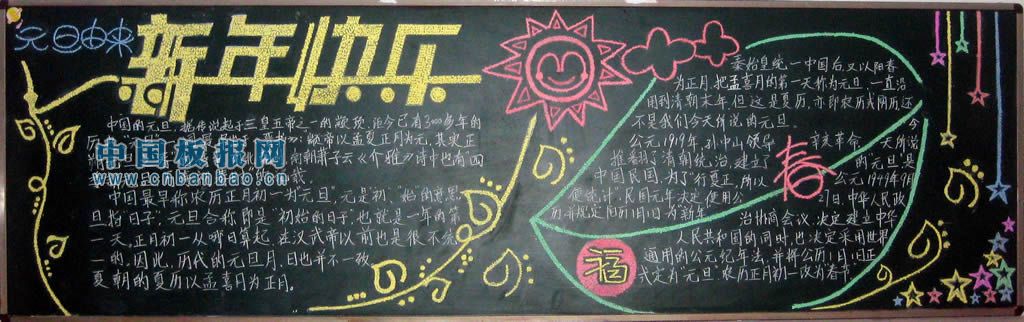 元旦由来
新年快乐
中国的元旦,据传说起于三皇五帝之一的颛顼,距今已有3000多年的
历
中国板报网
www.cnbanbao.cn
颛帝以孟夏正月为元,其实正
南朝肃子云《介雅》诗中也有四
中国最早称农历正月初一为"元旦",元是"初"、"始"的意思
旦指"日子",元旦合称即是"初始的日子",也就是一年的第
一天,正月初一从哪日算起,在汉武帝以前也是很不统
一的,因此,历代的元旦月、日也并不一致
夏朝的夏历以孟喜月为正月。
秦始皇统一中国后,又以阳春
为正月,把孟喜月的第一天称为元旦,一直沿
用到清朝末年,但这是夏历,亦即农历或阴历还
不是我们今天所说的元旦。
公元1919年,孙中山领导
推翻了清朝统治,建立了
中国民国,为了"行夏正,所以
便统计",民国元年决定使用公
历并规定阳历1月1日为新年
春
今
辛亥革命 天所说
的"元旦"是
公元1949年9月
27日,中华人民政
治协商会议,决定建立中华
人民共和国的同时,也决定采用世界
通用的公元纪年法,并将公历1月1日正
式定为"元旦"农历正月初一改为春节
福